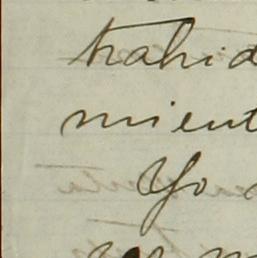 trahid
mient
Yo